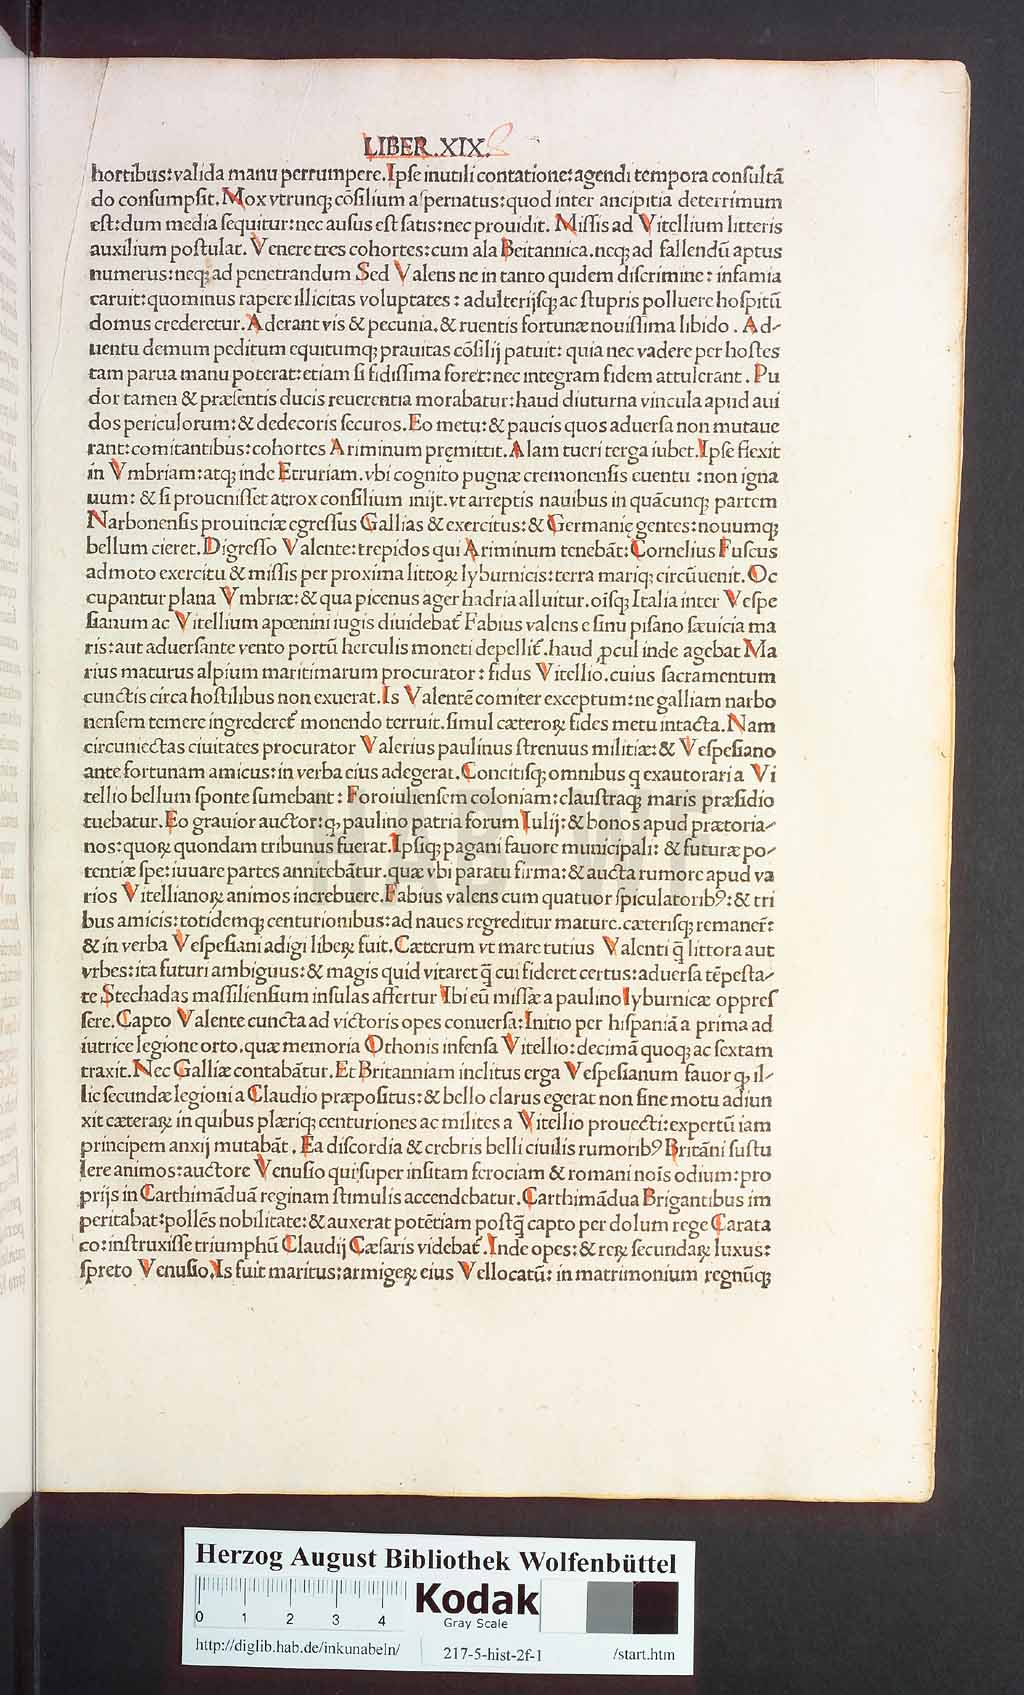 LIBER.XIX.
hortibus:valida manu perrumpere.Ipſe inutili contatione:agendi tempora conſultã
do conſumpſit.Mox vtrunqꝫ cõſilium aſpernatus:quod inter ancipitia deterrimum
eſt:dum media ſequitur:nec auſus eſt ſatis:nec prouidit. Miſſis ad Vitellium litteris
auxilium poſtulat. Venere tres cohortes:cum ala Beitannica.neqꝫ ad fallendũ aptus
numerus:neqꝫ ad penetrandum Sed Valens ne in tanto quidem diſcrimine: infamia
caruit:quominus rapere illicitas voluptates: adulterijſqꝫ ac ſtupris polluere hoſpitũ
domus crederetur.Aderant vis & pecunia.& ruentis fortunæ nouiſſima libido . Ad-
uentu demum peditum equitumqꝫ prauitas cõſilij patuit: quia nec vadere per hoſtes
tam parua manu poterat:etiam ſi fidiſſima foret:nec integram fidem attulerant. Pu
dor tamen & præſentis ducis reuerentia morabatur:haud diuturna vincula apud aui
dos periculorum:& dedecoris ſecuros.Eo metu:& paucis quos aduerſa non mutaue
rant:comitantibus:cohortes Ariminum pręmittit.Alam tueri terga iubet.Ipſe flexit
in Vmbriam:atqꝫ inde Etruriam.vbi cognito pugnæ cremonenſis euentu :non igna
uum: & ſi proueniſſet atrox conſilium inijt.vt arreptis nauibus in quãcunqꝫ partem
Narbonenſis prouinciæ egreſſus Gallias & exercitus:& Germanię gentes:nouumqꝫ
bellum cieret.Digreſſo Valente:trepidos qui Ariminum tenebãt:Cornelius Fuſcus
admoto exercitu & miſſis per proxima littoꝝ lyburnicis:terra mariqꝫ circũuenit.Oc
cupantur plana Vmbriæ:& qua picenus ager hadria alluitur.oiſqꝫ Italia inter Veſpe
ſianum ac Vitellium apœnini iugis diuidebat᷒ Fabius valens e ſinu piſano ſæuicia ma
ris:aut aduerſante vento portũ herculis moneti depellit᷒.haud ꝓcul inde agebat Ma
rius maturus alpium maritimarum procurator: fidus Vitellio.cuius ſacramentum
cunctis circa hoſtilibus non exuerat.Is Valentẽ comiter exceptum:ne galliam narbo
nenſem temere ingrederet᷒ monendo terruit.ſimul cæteroꝝ fides metu intacta.Nam
circuniectas ciuitates procurator Valerius paulinus ſtrenuus militiæ:& Veſpeſiano
ante fortunam amicus:in verba eius adegerat.Concitiſqꝫ omnibus q exautorari a Vi
tellio bellum ſponte ſumebant: Foroiulienſem coloniam:clauſtraqꝫ maris præſidio
tuebatur.Eo grauior auctor:qꝫ paulino patria forum Iulij:& bonos apud prætoria-
nos:quoꝝ quondam tribunus fuerat.Ipſiqꝫ pagani fauore municipali: & futuræ po-
tentiæ ſpe:iuuare partes annitebãtur.quæ vbi paratu firma:& aucta rumore apud va
rios Vitellianoꝝ animos increbuere.Fabius valens cum quatuor ſpiculatoribꝰ:& tri
bus amicis:totidemqꝫ centurionibus:ad naues regreditur mature.cæteriſqꝫ remaner᷒:
& in verba Veſpeſiani adigi liberꝝ fuit.Cæterum vt mare tutius Valenti q̃ littora aut
vrbes:ita futuri ambiguus:& magis quid vitaret q̃ cui fideret certus:aduerſa tẽpeſta-
te Stechadas maſſilienſium inſulas affertur Ibi eũ miſſæ a paulino lyburnicæ oppreſ
ſere.Capto Valente cuncta ad victoris opes conuerſa:Initio per hiſpaniã a prima ad
iutrice legione orto.quæ memoria Othonis infenſa Vitellio:decimã quoqꝫ ac ſextam
traxit.Nec Galliæ contabãtur.Et Britanniam inclitus erga Veſpeſianum fauor qꝫ il-
lic ſecundæ legioni a Claudio præpoſitus:& bello clarus egerat non ſine motu adiun
xit cæteraꝝ in quibus plæriqꝫ centuriones ac milites a Vitellio prouecti:expertũ iam
principem anxij mutabãt. Ea diſcordia & crebris belli ciuilis rumoribꝰ Britãni ſuſtu
lere animos:auctore Venuſio qui ſuper inſitam ferociam & romani nois̃ odium:pro
prijs in Carthimãduã reginam ſtimulis accendebatur.Carthimãdua Brigantibus im
peritabat:pollẽs nobilitate:& auxerat potẽtiam poſtq̃ capto per dolum rege Carata
co:inſtruxiſſe triumphũ Claudij Cæſaris videbat᷒.Inde opes:& reꝝ ſecundaꝝ luxus:
ſpreto Venuſio.Is fuit maritus:armigeꝝ eius Vellocatũ: in matrimonium regnũqꝫ
HAB-WF
Herzog August Bibliothek Wolfenbüttel
0 1 2 3 4
Kodak
Gray Scale
http://diglib.hab.de/inkunabeln/ 217-5-hist-2f-1 /start.htm